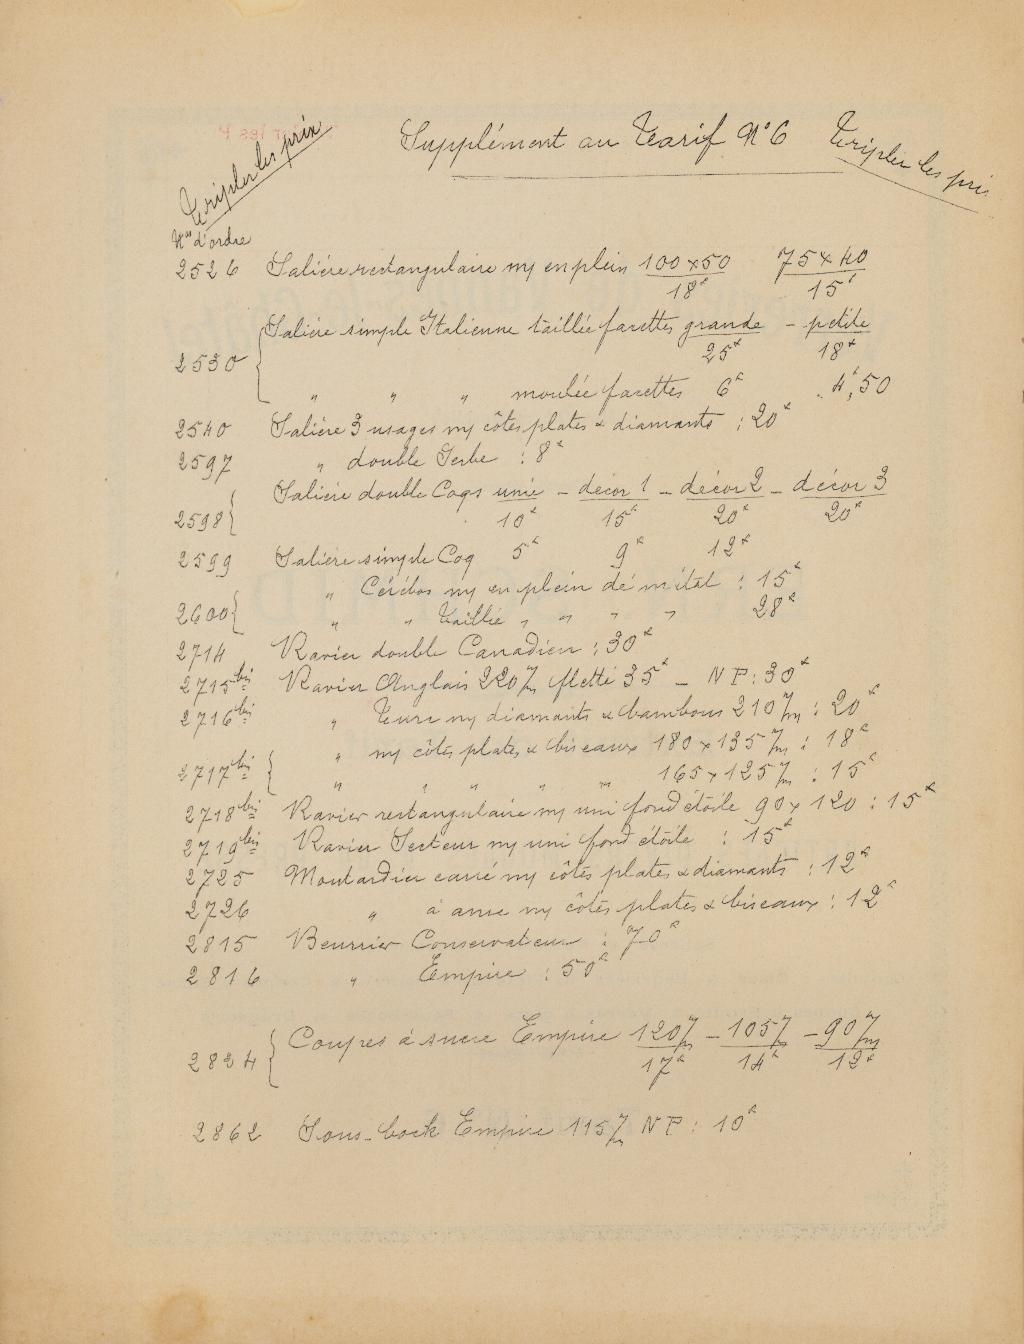 Tripler les prix
Supplément au Tarif N° 6
Tripler les prix
Nos d'ordre
2526 Salière rectangulaire my en plein 100 x 50 75 x 40
18f 15f
Salière simple Italienne taillée facettes grande - petite
2530 25f 18f
" " " moulée facettes 6f 4f,50
2540 Salière 3 usages my côtes plates & diamants : 20f
2597 " double Gerbe : 8f
Salière double Coqs unie - décor 1 - décor 2 - décor 3
2598 10f 15f 20f 20f
2599 Salière simple Coq 5f 9f 12f
" Cérébos my en plein dé métal : 15f
2600 " " Taillée " " " " 28f
2714 Ravier double Canadien : 30f
2715 bis Ravier Anglais 220 m/m fletté 35f - NP : 30f
2716 bis " Ture my diamants & bambous 210 m/m : 20f
" my côtes plates & biseaux 180 x 135 m/m : 18f
2717 bis " " " " " 165 x 125 m/m : 15f
2718 bis Ravier rectangulaire my uni fond étoile 90 x 120 : 15f
2719 bis Ravier Secteur my uni fond étoile : 15f
2725 Moutardier carré my côtes plates & diamants : 12f
2726 " à anse my côtes plates & biseaux : 12f
2815 Beurrier Conservateur : 70f
2816 " Empire : 50f
Coupes à sucre Empire 120 m/m - 105 m/m - 90 m/m
2824 17f 14f 12f
2862 Sous-bock Empire 115 m/m NP : 10f